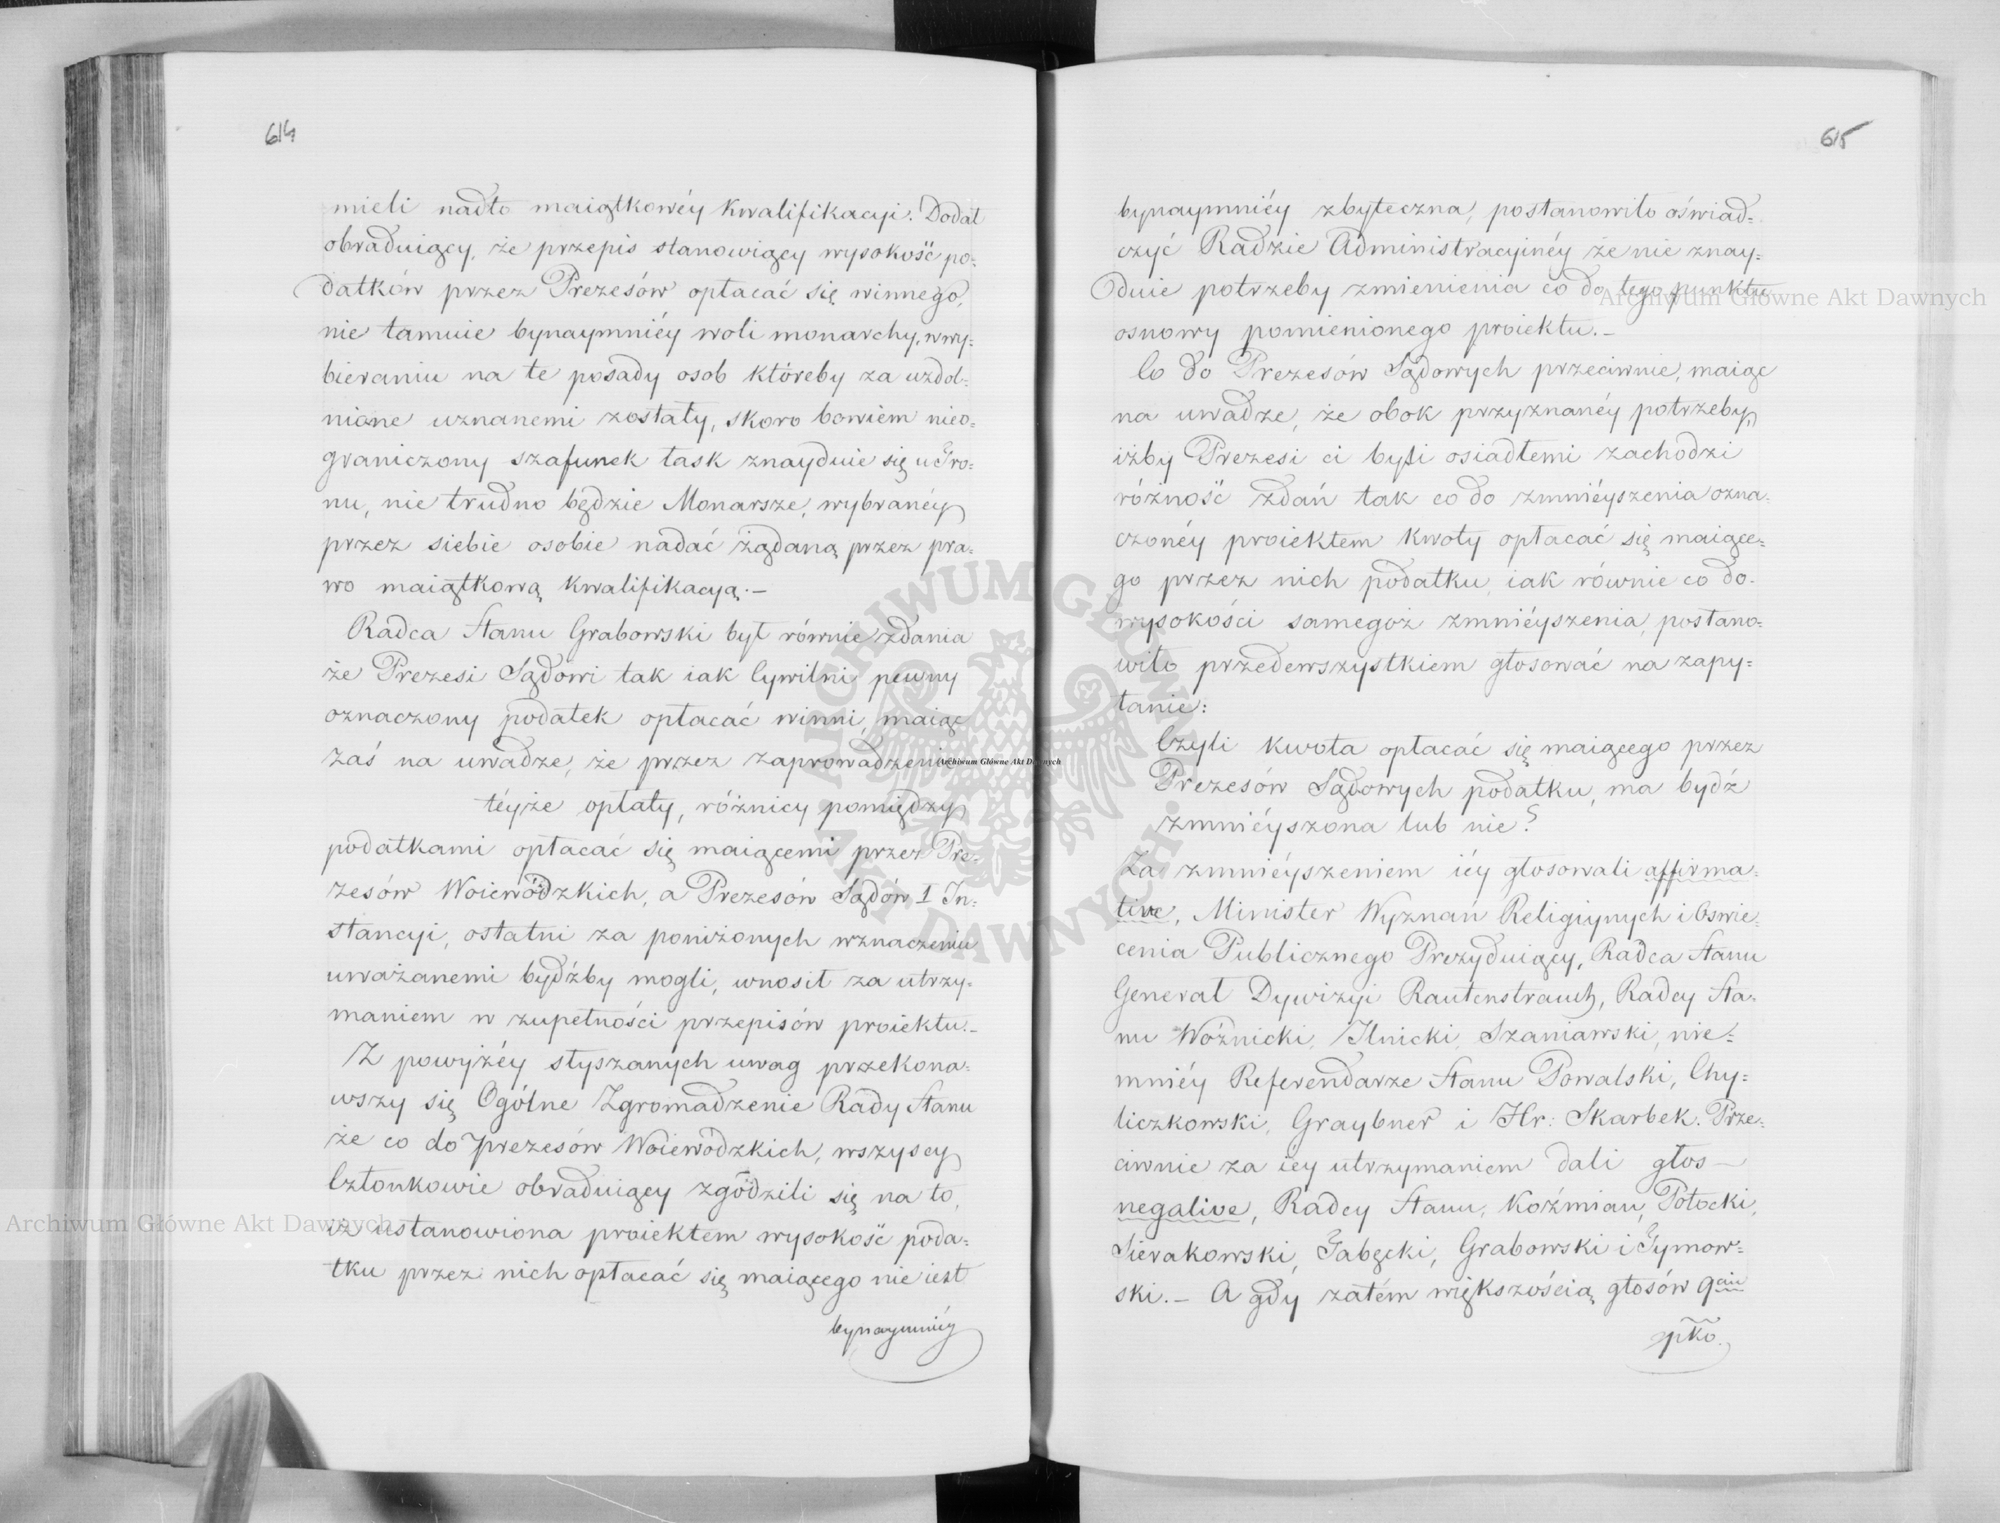 614
mieli nadto maiątkowéy kwalifikacyi. Dodał
obraduiący, że przepis stanowiący wysokość po=
datków przez Prezesów opłacać się winnego,
nie tamuie bynaymniéy woli monarchy, w wy=
bieraniu na te posady osob któreby za uzdol=
nione uznanemi zostały, skoro bowiem nieo=
graniczony szafunek łask znayduie się u Tro=
nu, nie trudno będzie Monarsze, wybranéy
przez siebie osobie nadać żądaną przez pra=
wo maiątkową kwalifikacyą.—
Radca Stanu Grabowski był równie zdania
że Prezesi Sądowi tak iak Cywilni pewny
oznaczony podatek opłacać winni, maiąc
zaś na uwadze, że przez zaprowadzenie
téyże opłaty, różnicy pomiędzy
podatkami opłacać się maiącemi przez Pre=
zesów Woiewódzkich, a Prezesów Sądów I In=
stancyi, ostatni za poniżonych w znaczeniu
uważanemi bydźby mogli, wnosił za utrzy=
maniem w zupełności przepisów proiektu.—
Z powyżéy słyszanych uwag przekona=
wszy się Ogólne Zgromadzenie Rady Stanu
że co do prezesów Woiewódzkich, wszyscy
Członkowie obraduiący zgodzili się na to,
iż ustanowiona proiektem wysokość poda=
tku przez nich opłacać się maiącego nie iest
bynaymniéy
615
bynaymniéy zbyteczna, postanowiło oświad=
czyć Radzie Administracyinéy że nie znay=
duie potrzeby zmienienia co do tego punktu
osnowy pomienionego proiektu.—
Co do Prezesów Sądowych przeciwnie, maiąc
na uwadze, że obok przyznanéy potrzeby,
iżby Prezesi ci byli osiadłemi zachodzi
różność zdań tak co do zmniéyszenia ozna=
czonéy proiektem kwoty opłacać się maiące=
go przez nich podatku, iak równie co do
wysokości samegoż zmniéyszenia, postano=
wiło przedewszystkiem głosować na zapy=
tanie:
Czyli kwota opłacać się maiącego przez
Prezesów Sądowych podatku, ma bydź
zmniéyszona lub nie?
Za zmniéyszeniem iéy głosowali affirma=
tive, Minister Wyznań Religiynych i Oświe=
cenia Publicznego Prezyduiący, Radca Stanu
Generał Dywizyi Rautenstrauch, Radcy Sta=
nu Woźnicki, Ilnicki, Szaniawski, nie=
mniéy Referendarze Stanu Powalski, Chy=
liczkowski, Graybner i Hr: Skarbek. Prze=
ciwnie za iey utrzymaniem dali głos—
negative, Radcy Stanu, Koźmian, Potocki,
Sierakowski, Gabęcki, Grabowski i Tymow=
ski.— A gdy zatém większością głosów 9ciu
pko.
Archiwum Główne Akt Dawnych
Archiwum Główne Akt Dawnych
Archiwum Główne Akt Dawnych
ARCHIWUM GŁÓWNE AKT DAWNYCH